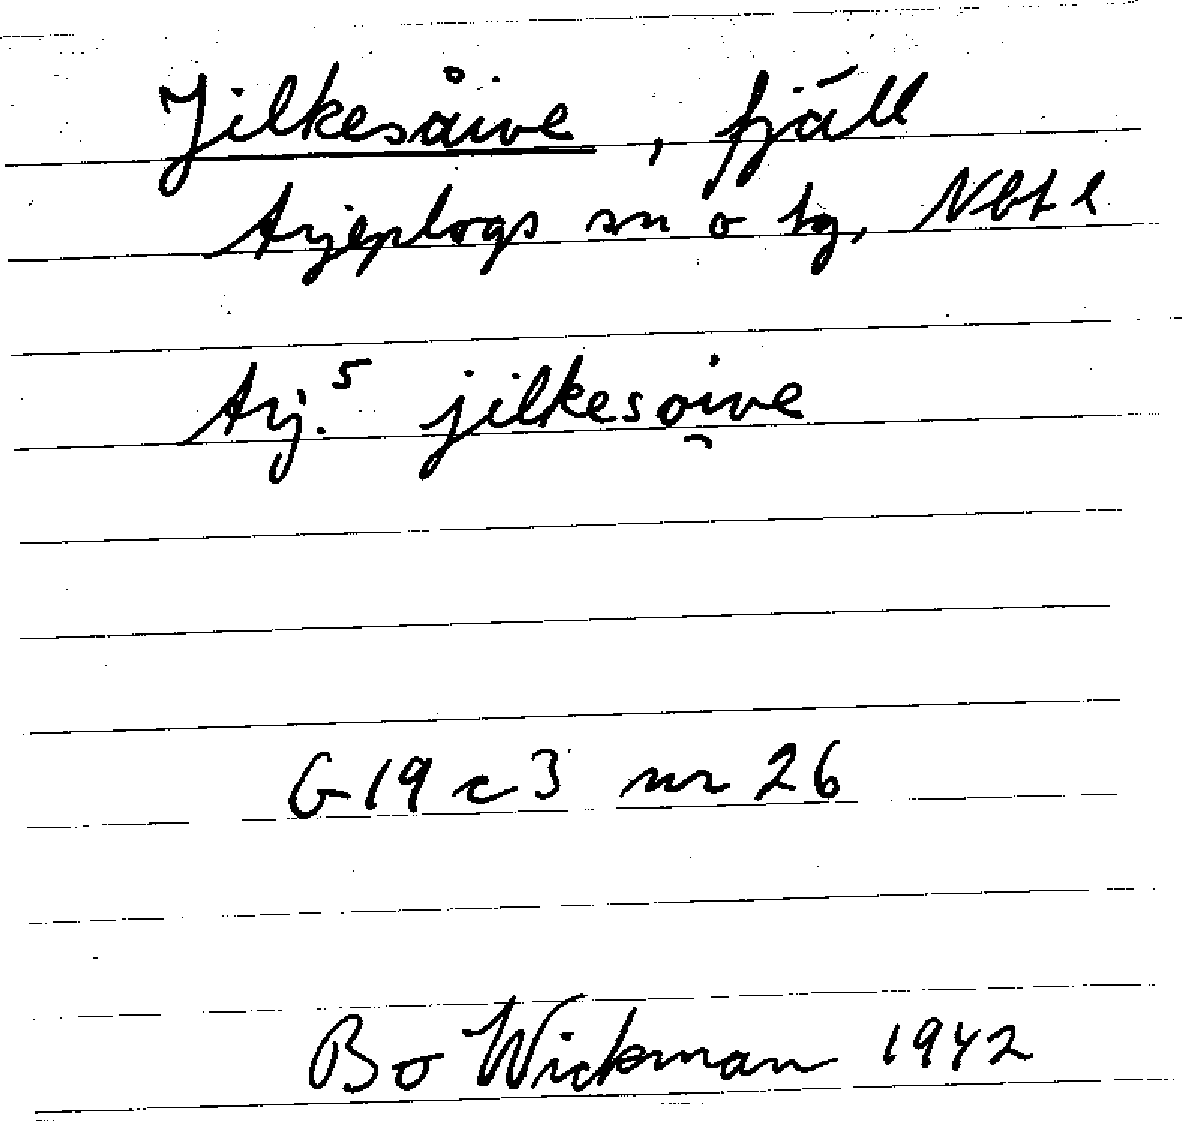 Jilkesåive, fjäll
Arjeplogs sn o tg, Nbt l
Arj.⁵ jilkeso̯ive
G 19 c 3 nr 26
Bo Wickman 1942